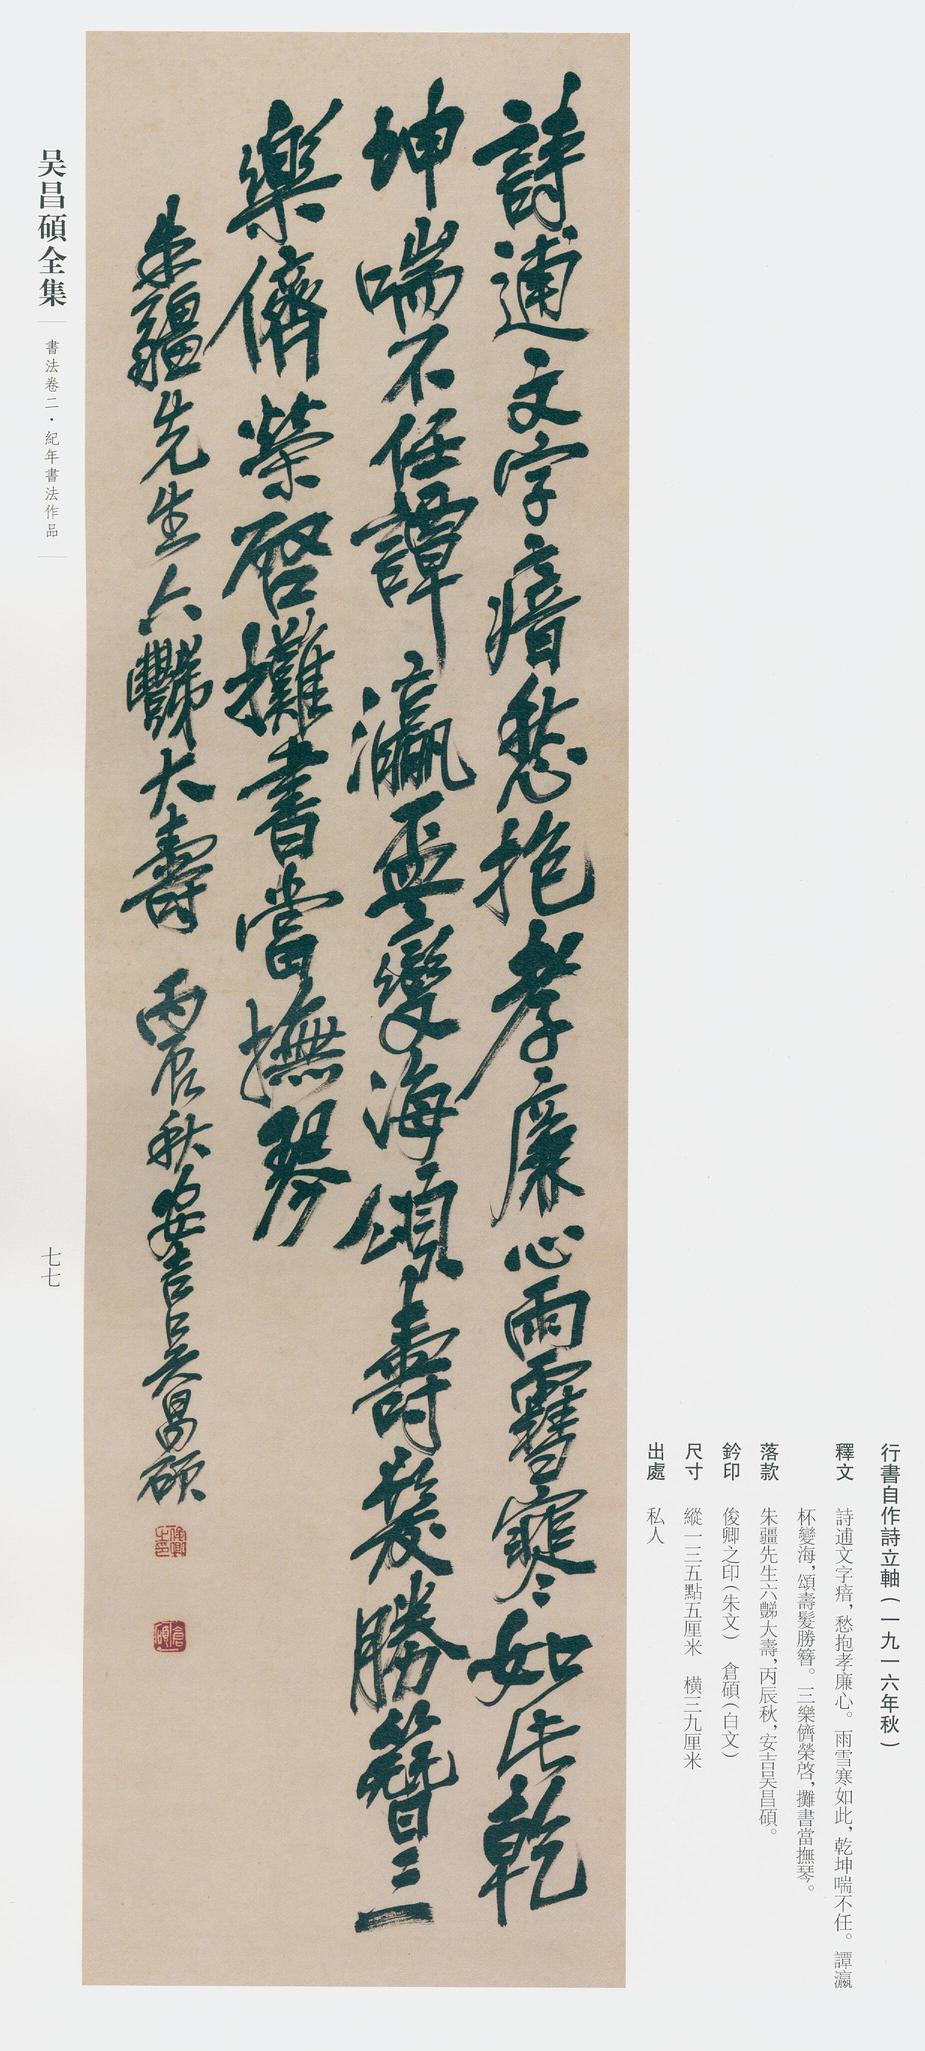 行書自作詩立軸（一九一六年秋）
釋文 詩逋文字瘖，愁抱孝廉心。雨雪寒如此，乾坤喘不任。譚瀛
杯變海，頌壽髮勝簪。三樂儕榮啓，攤書當撫琴。
落款 朱疆先生六豑大壽，丙辰秋，安吉吴昌碩。
鈐印 俊卿之印（朱文） 倉碩（白文）
尺寸 縱一三五點五厘米 橫三九厘米
出處 私人
詩逋文字瘖愁抱孝廉心雨雪寒如此乾
坤喘不任譚瀛盃變海頌壽髮勝簪三
樂儕榮啓攤書當撫琴
朱疆先生六豑大壽 丙辰秋安吉吴昌碩
俊卿之印
倉碩
吴昌碩全集
書法卷二·紀年書法作品
七七